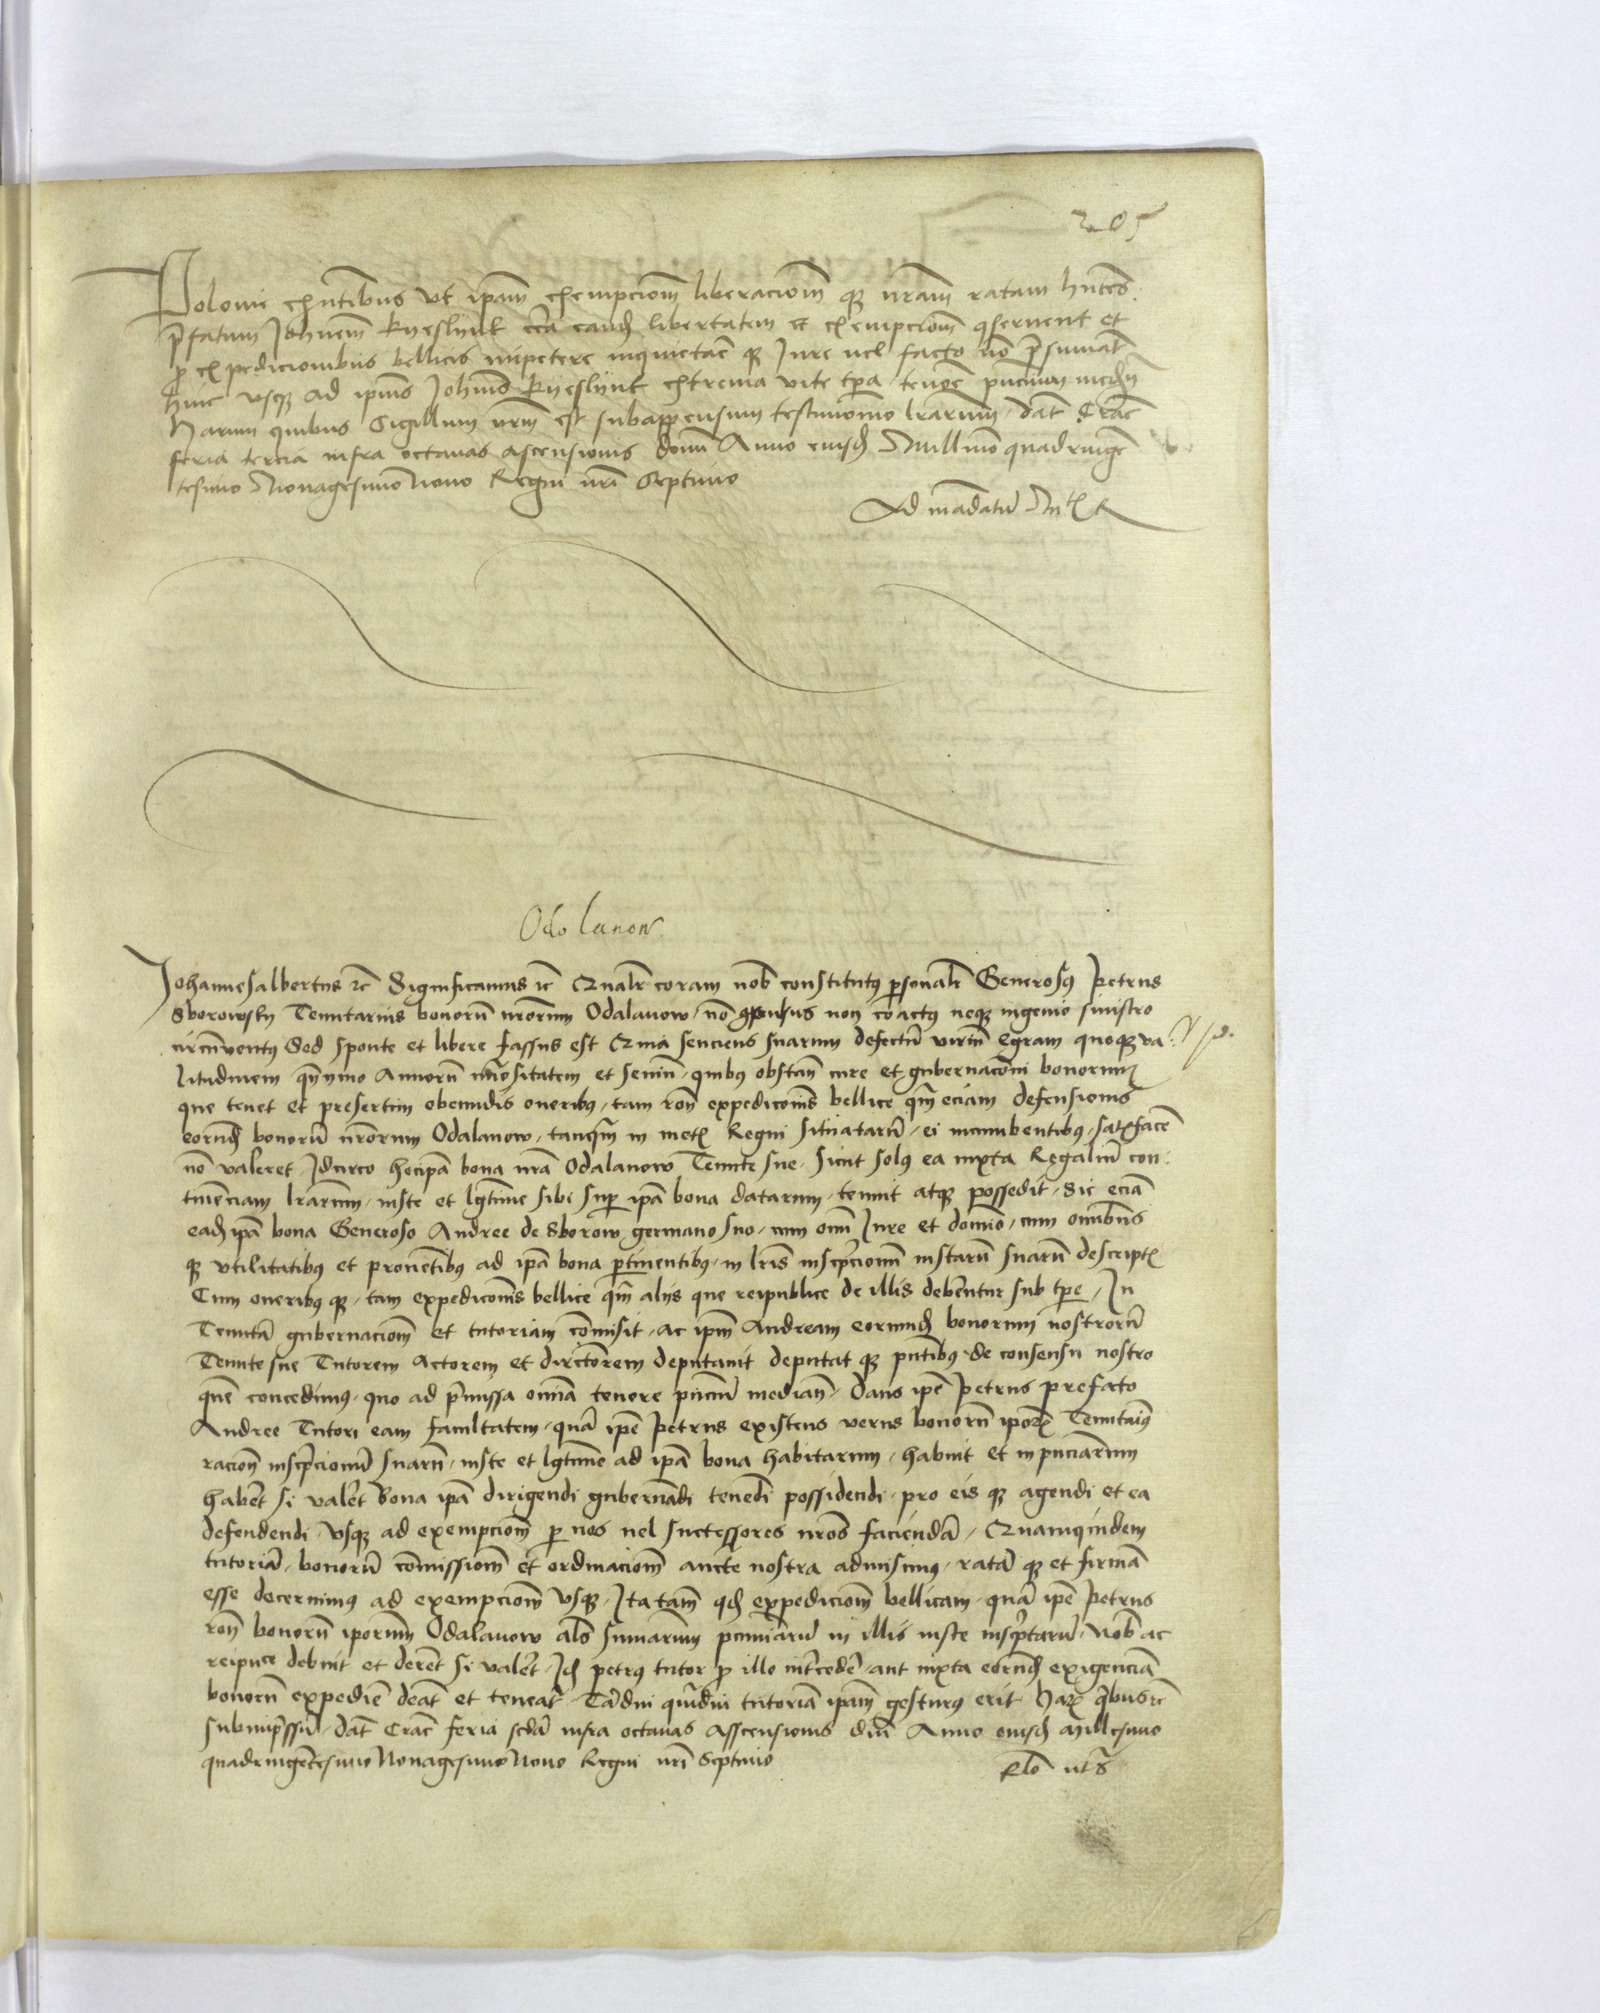 205
Polonie exñtibus vt ipam exempciom liberaciom qz nram ratam hñtes
prefatum Johnem Kyeslynk circa eandem libertatem et exempciom conseruent et
pro expedicionibus bellicis impetere inquietare qz Jure uel facto no presumant
hinc vsqz ad ipius Johnis Kyeslynk extrema vite tpa tenore pncium medn
Harum quibus Sigillum nrm est subappensum testimonio lrarum dat Crac
feria tercia infra octauas ascensionis domi Anno eiusd Millimo quadringe
tesimo Nonagesimo Nono Regni nri Septimo
Ad madatu
Odolanow
Johannesalbertus rc Significamus rc Qualr coram nob constitutus personalr Generosus Petrus
Sborowsky Tenutarius bonoru nrorum Odalanow no compulsus non coactus neqz ingenio sinistro
circuuentus Sed sponte et libere fassus est Quia senciens suarum defectu virium Egram quoqz va
litudinem qnymo Annoru numerositatem et seniu quibus obstan cure et gubernaconi bonorum
que tenet et presertim obeundis oneribus tam ron expedicois bellice qm eciam defensionis
eorund bonoru nrorum Odalanow tanqm in metis Regni situatarum ei incumbentibus satisface
no valeret Idcirco hec ipa bona nra Odalanow Tenute sue sicut solus ea iuxta Regaliu con
tinenciam lrarum iuste et lgtime sibi super ipa bona datarum tenuit atqz possedit Sic ecia
ead ipa bona Generoso Andree de Sborow germano suo cum omi Jure et domio cum omibus
qz vtilitatibus et prouetibus ad ipa bona pertinentibus in lris inscripcionum iustaru suaru descriptis
Cum oneribus qz tam expedicois bellice qm alijs que reipublice de illis debentur sub tpe In
Tenuta gubernaciom et tutoriam comisit ac ipm Andream eorund bonorum nostroru
Tenute sue Tutorem Actorem et directorem deputauit deputat qz pntibus de consensu nostro
que concedimus quo ad premissa omia tenore pnciu median Dans ipe Petrus prefato
Andree Tutori eam facultatem qua ipe Petrus existens verus bonoru ipor Tenutarius
racion inscripcionu suaru iuste et lgtime ad ipa bona habitarum habuit et in pnciarum
haberet si valeret bona ipa dirigendi gubernadi tenedi possidendi pro eis qz agendi et ea
defendendi vsqz ad exempciom per nos uel successores nros facienda Quamquidem
tutoria bonoru comissiom et ordinaciom aucte nostra admisimus rata qz et firma
esse decernimus ad exempciom vsqz Ita tam qd expediciom bellicam qua ipe Petrus
ron bonoru iporum Odalanow als sumarum pecuniaru in illis iuste inscriptaru Nob ac
reipuce debuit et deret si valeret Id petrus tutor pro illo intercede aut iuxta eorund exigencia
bonoru expedire deat et teneatur Tadiu quadiu tutoria ipam gesturus erit Har quibus rc
subimpssu Dat Crac feria scda infra octauas Asscensionis dni Anno eiusd Millesimo
quadringetesimo Nonagesimo Nono Regni nri Septimo
Rlo ut s